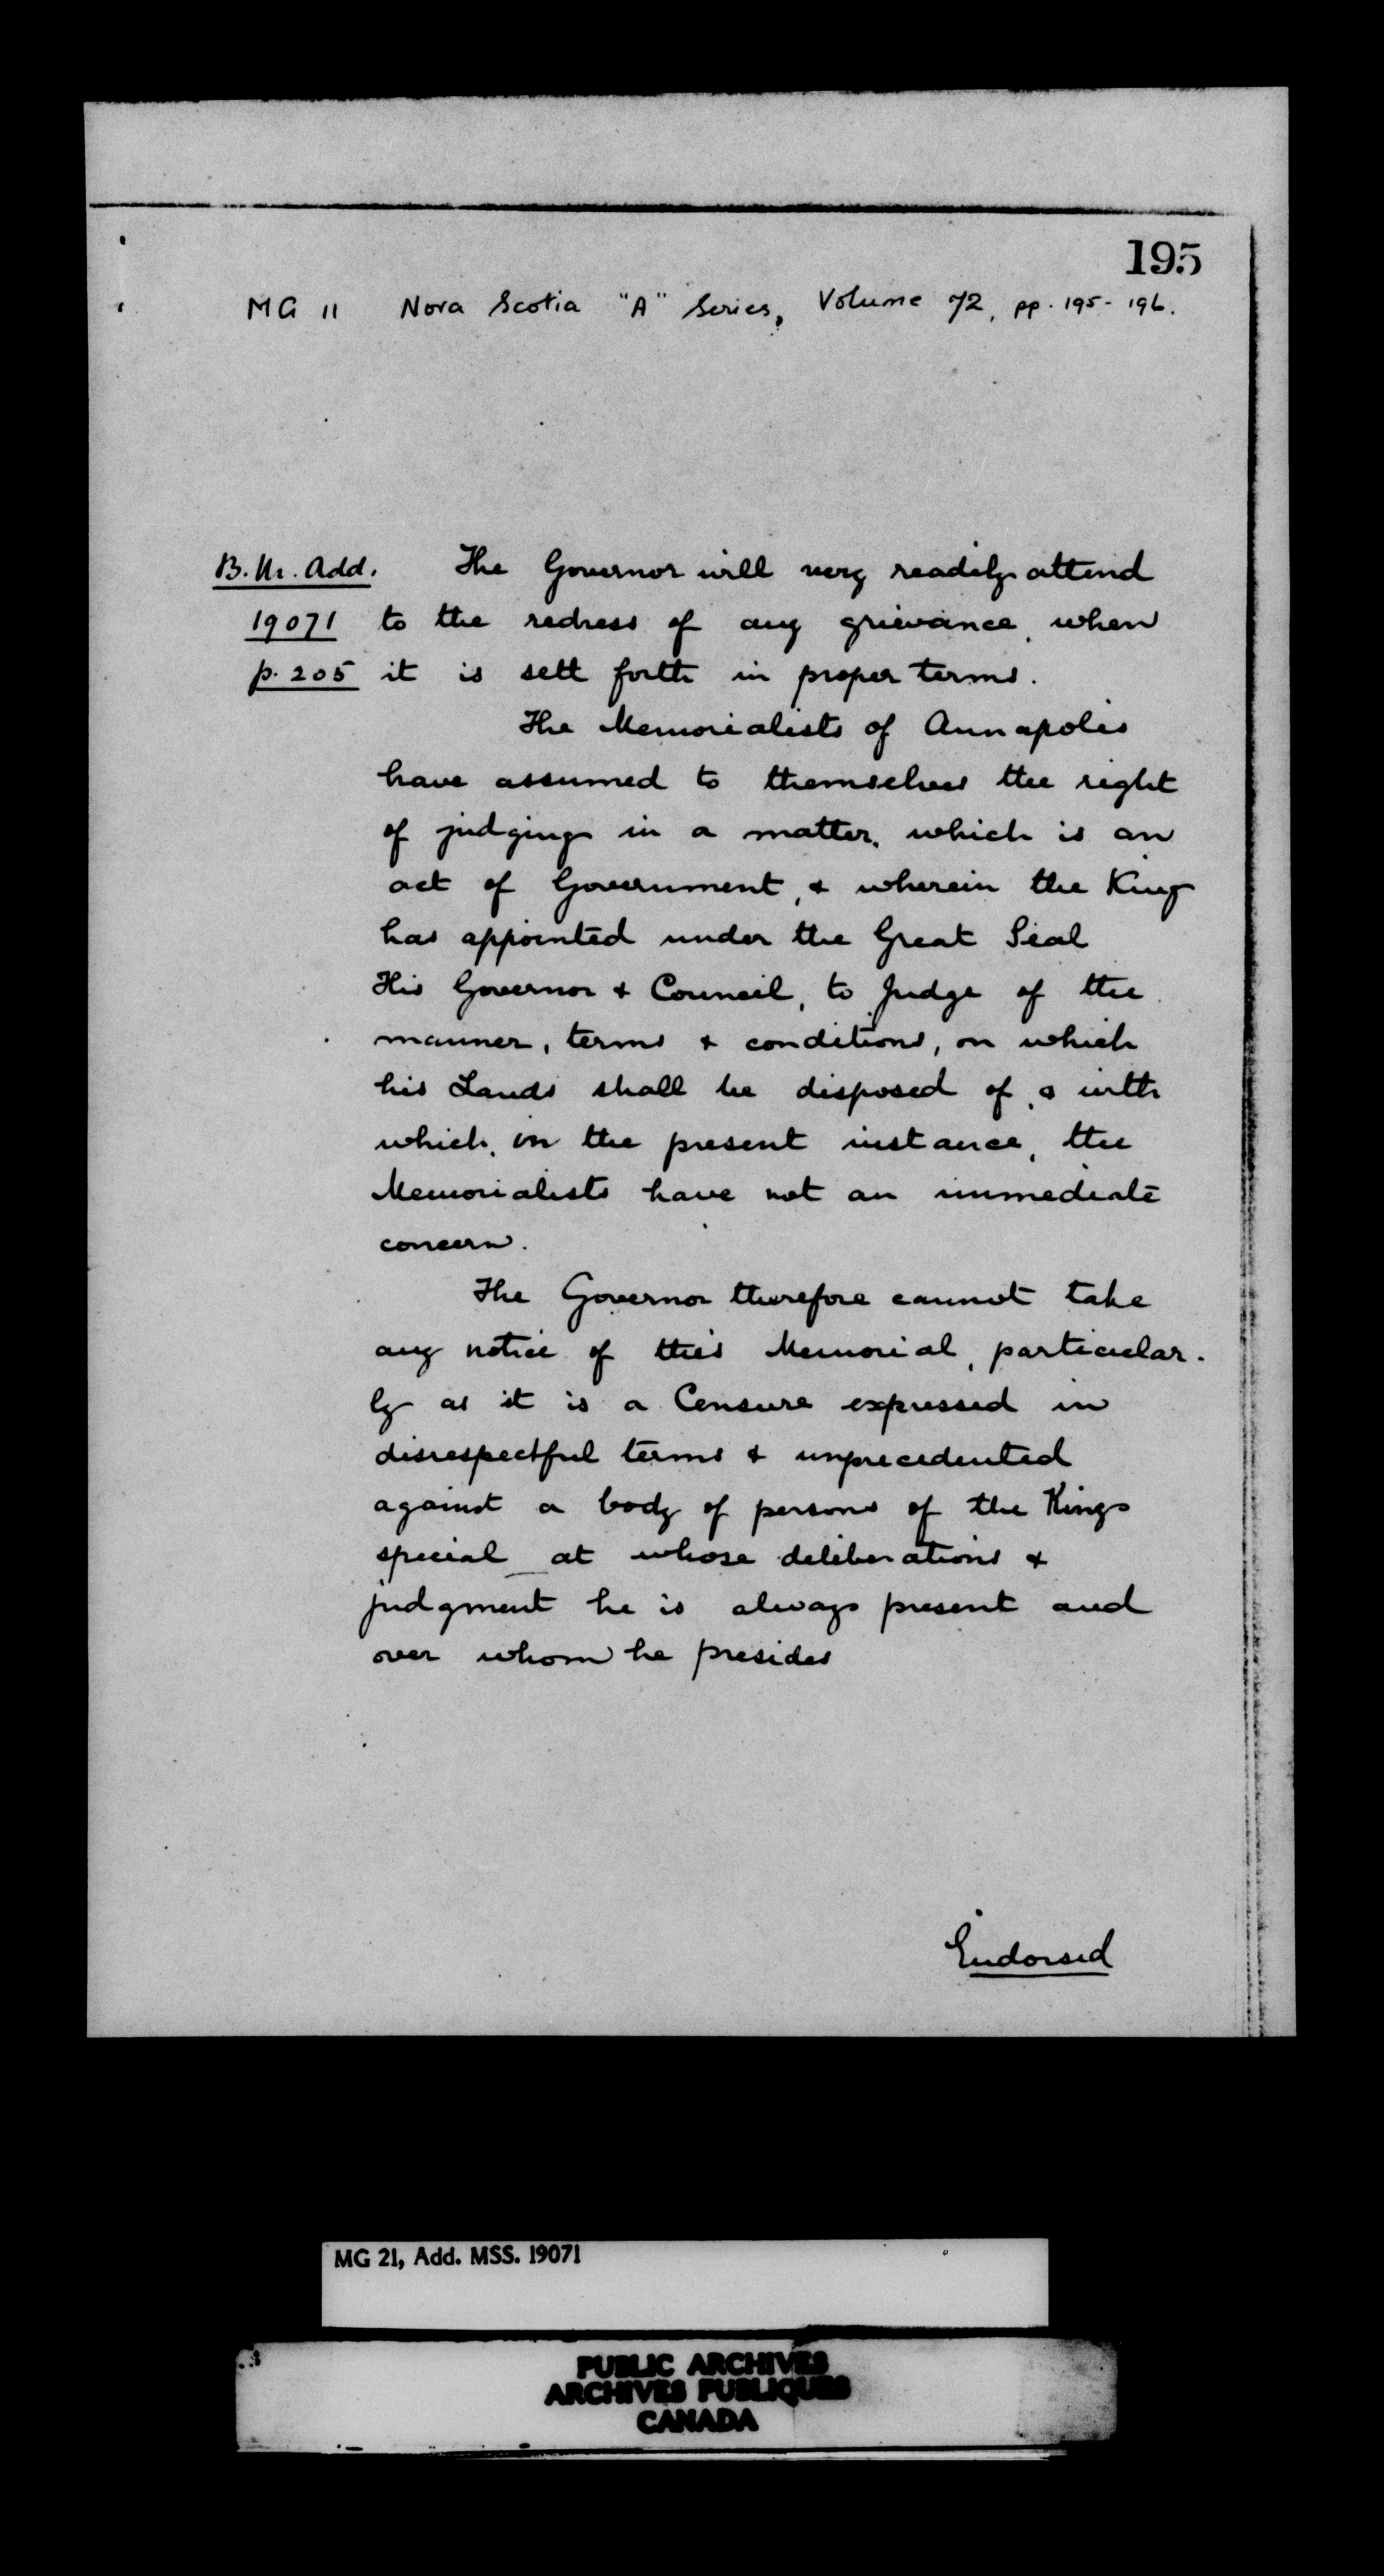 195
MG 11 Nova Scotia "A" Series, Volume 72, pp. 195-196.
B. M. Add. The Governor will very readily attend
19071 to the redress of any grievance, when
p. 205 it is sett forth in proper terms.
The Memorialists of Annapolis
have assumed to themselves the right
of judging in a matter, which is an
act of Government, & wherein the King
has appointed under the Great Seal
His Governor & Council, to Judge of the
manner, terms & conditions, on which
his Lands shall be disposed of, & with
which, in the present instance, the
Memorialists have not an immediate
concern.
The Governor therefore cannot take
any notice of this Memorial, particular-
ly as it is a Censure expressed in
disrespectful terms & unprecedented
against a body of persons of the Kings
special _ at whose deliberations &
judgment he is always present and
over whom he presides
Endorsed
MG 21, Add. MSS. 19071
PUBLIC ARCHIVES
ARCHIVES PUBLIQUES
CANADA